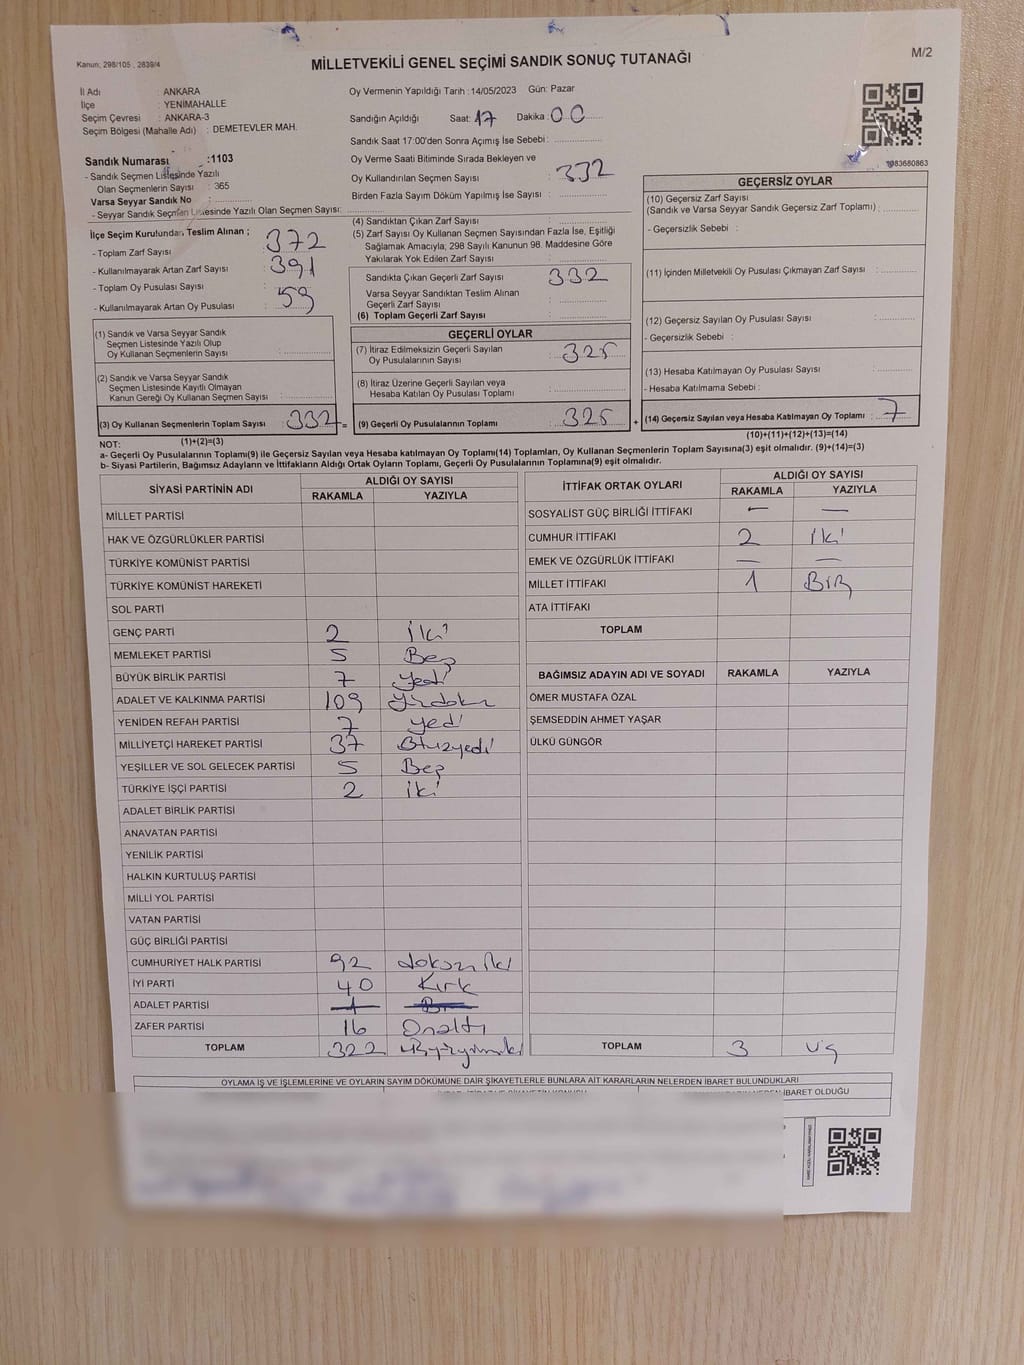 Kanun; 298/105 , 2839/4
MİLLETVEKİLİ GENEL SEÇİMİ SANDIK SONUÇ TUTANAĞI
M/2
İl Adı : ANKARA
İlçe : YENİMAHALLE
Seçim Çevresi : ANKARA-3
Seçim Bölgesi (Mahalle Adı) : DEMETEVLER MAH.
Sandık Numarası :1103
- Sandık Seçmen Listesinde Yazılı
Olan Seçmenlerin Sayısı : 365
Varsa Seyyar Sandık No
- Seyyar Sandık Seçmen Listesinde Yazılı Olan Seçmen Sayısı:
İlçe Seçim Kurulundan Teslim Alınan ;
- Toplam Zarf Sayısı : 372
- Kullanılmayarak Artan Zarf Sayısı : 391
- Toplam Oy Pusulası Sayısı :
- Kullanılmayarak Artan Oy Pusulası : 59
(1) Sandık ve Varsa Seyyar Sandık
Seçmen Listesinde Yazılı Olup
Oy Kullanan Seçmenlerin Sayısı :
(2) Sandık ve Varsa Seyyar Sandık
Seçmen Listesinde Kayıtlı Olmayan
Kanun Gereği Oy Kullanan Seçmen Sayısı :
(3) Oy Kullanan Seçmenlerin Toplam Sayısı : 332 =
(1)+(2)=(3)
Oy Vermenin Yapıldığı Tarih : 14/05/2023 Gün: Pazar
Sandığın Açıldığı Saat: 17 Dakika : 00
Sandık Saat 17:00'den Sonra Açımış İse Sebebi :
Oy Verme Saati Bitiminde Sırada Bekleyen ve
Oy Kullandırılan Seçmen Sayısı : 332
Birden Fazla Sayım Döküm Yapılmış İse Sayısı :
(4) Sandıktan Çıkan Zarf Sayısı :
(5) Zarf Sayısı Oy Kullanan Seçmen Sayısından Fazla İse, Eşitliği
Sağlamak Amacıyla; 298 Sayılı Kanunun 98. Maddesine Göre
Yakılarak Yok Edilen Zarf Sayısı :
Sandıkta Çıkan Geçerli Zarf Sayısı : 332
Varsa Seyyar Sandıktan Teslim Alınan
Geçerli Zarf Sayısı :
(6) Toplam Geçerli Zarf Sayısı :
GEÇERLİ OYLAR
(7) İtiraz Edilmeksizin Geçerli Sayılan
Oy Pusulalarının Sayısı : 325
(8) İtiraz Üzerine Geçerli Sayılan veya
Hesaba Katılan Oy Pusulası Toplamı :
(9) Geçerli Oy Pusulalarının Toplamı : 325 +
1083660863
GEÇERSİZ OYLAR
(10) Geçersiz Zarf Sayısı
(Sandık ve Varsa Seyyar Sandık Geçersiz Zarf Toplamı) :
- Geçersizlik Sebebi :
(11) İçinden Milletvekili Oy Pusulası Çıkmayan Zarf Sayısı :
(12) Geçersiz Sayılan Oy Pusulası Sayısı :
- Geçersizlik Sebebi :
(13) Hesaba Katılmayan Oy Pusulası Sayısı :
- Hesaba Katılmama Sebebi :
(14) Geçersiz Sayılan veya Hesaba Katılmayan Oy Toplamı : 7
(10)+(11)+(12)+(13)=(14)
NOT:
a- Geçerli Oy Pusulalarının Toplamı(9) ile Geçersiz Sayılan veya Hesaba katılmayan Oy Toplamı(14) Toplamları, Oy Kullanan Seçmenlerin Toplam Sayısına(3) eşit olmalıdır. (9)+(14)=(3)
b- Siyasi Partilerin, Bağımsız Adayların ve İttifakların Aldığı Ortak Oyların Toplamı, Geçerli Oy Pusulalarının Toplamına(9) eşit olmalıdır.
SİYASİ PARTİNİN ADI ALDIĞI OY SAYISI
RAKAMLA YAZIYLA
MİLLET PARTİSİ
HAK VE ÖZGÜRLÜKLER PARTİSİ
TÜRKİYE KOMÜNİST PARTİSİ
TÜRKİYE KOMÜNİST HAREKETİ
SOL PARTİ
GENÇ PARTİ 2 İki
MEMLEKET PARTİSİ 5 Beş
BÜYÜK BİRLİK PARTİSİ 7 yedi
ADALET VE KALKINMA PARTİSİ 109
YENİDEN REFAH PARTİSİ 7 yedi
MİLLİYETÇİ HAREKET PARTİSİ 37 Otuzyedi
YEŞİLLER VE SOL GELECEK PARTİSİ 5 Beş
TÜRKİYE İŞÇİ PARTİSİ 2 iki
ADALET BİRLİK PARTİSİ
ANAVATAN PARTİSİ
YENİLİK PARTİSİ
HALKIN KURTULUŞ PARTİSİ
MİLLİ YOL PARTİSİ
VATAN PARTİSİ
GÜÇ BİRLİĞİ PARTİSİ
CUMHURİYET HALK PARTİSİ 92 doksan iki
İYİ PARTİ 40 Kırk
ADALET PARTİSİ
ZAFER PARTİSİ 16 Onaltı
TOPLAM 322
İTTİFAK ORTAK OYLARI ALDIĞI OY SAYISI
RAKAMLA YAZIYLA
SOSYALİST GÜÇ BİRLİĞİ İTTİFAKI — —
CUMHUR İTTİFAKI 2 İki
EMEK VE ÖZGÜRLÜK İTTİFAKI — —
MİLLET İTTİFAKI 1 BİR
ATA İTTİFAKI
TOPLAM
BAĞIMSIZ ADAYIN ADI VE SOYADI RAKAMLA YAZIYLA
ÖMER MUSTAFA ÖZAL
ŞEMSEDDİN AHMET YAŞAR
ÜLKÜ GÜNGÖR
TOPLAM 3 üç
OYLAMA İŞ VE İŞLEMLERİNE VE OYLARIN SAYIM DÖKÜMÜNE DAİR ŞİKAYETLERLE BUNLARA AİT KARARLARIN NELERDEN İBARET BULUNDUKLARI
İBARET OLDUĞU